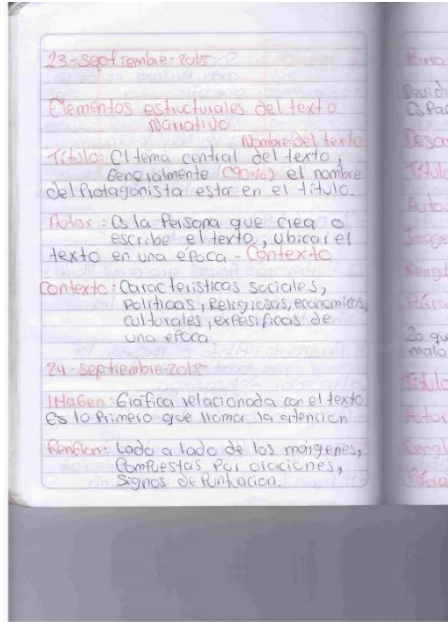 23-septiembre-2015
Elementos estructurales del texto
Narrativo.
Nombre del texto
Título: El tema central del texto,
Generalmente (90%) el nombre
del Protagonista esta en el título.
Autor: Es la Persona que crea o
escribe el texto, ubicar el
texto en una epoca - Contexto
Contexto: Caracteristicas sociales,
Politicas, Religiosas, economicas,
culturales, expesificas de
una epoca
24-septiembre-2015
IMaGen: Grafica relacionada con el texto.
Es lo Primero que llama la atencion
Renglon: Lado a lado de los margenes,
Compuestas Por oraciones,
Signos de Puntuacion.
Desa
Título
Auto
Image
Rengl
20 qu
malo
Titulo
Autor
Rengl